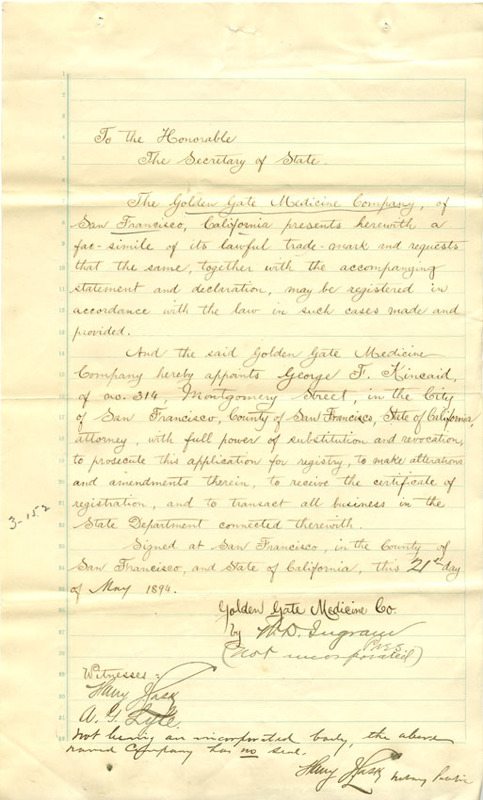 To the Honorable
The Secretary of State.
The Golden Gate Medicine Company, of
San Francisco, California presents herewith a
fac-simile of its lawful trade-mark and requests
that the same, together with the accompanying
statement and declaration, may be registered in
accordance with the law in such cases made and
provided.
And the said Golden Gate Medicine
Company hereby appoints George F. Kincaid,
of no. 314, Montgomery Street, in the City
of San Francisco, County of San Francisco, State of California,
attorney, with full power of substitution and revocation,
to prosecute this application for registry, to make alterations
and amendments therein, to receive the certificate of
registration, and to transact all business in the
3-152
State Department connected therewith.
Signed at San Francisco, in the County of
San Francisco, and State of California, this 21st day
of May 1894.
Golden Gate Medicine Co.
by M.D. Ingram
Pres
(Not incorporated)
Witnesses
Harry J Lask
A. G. Lyle.
Not being an incorporated body, the above
named Company has no seal.
Harry J Lask Notary Public